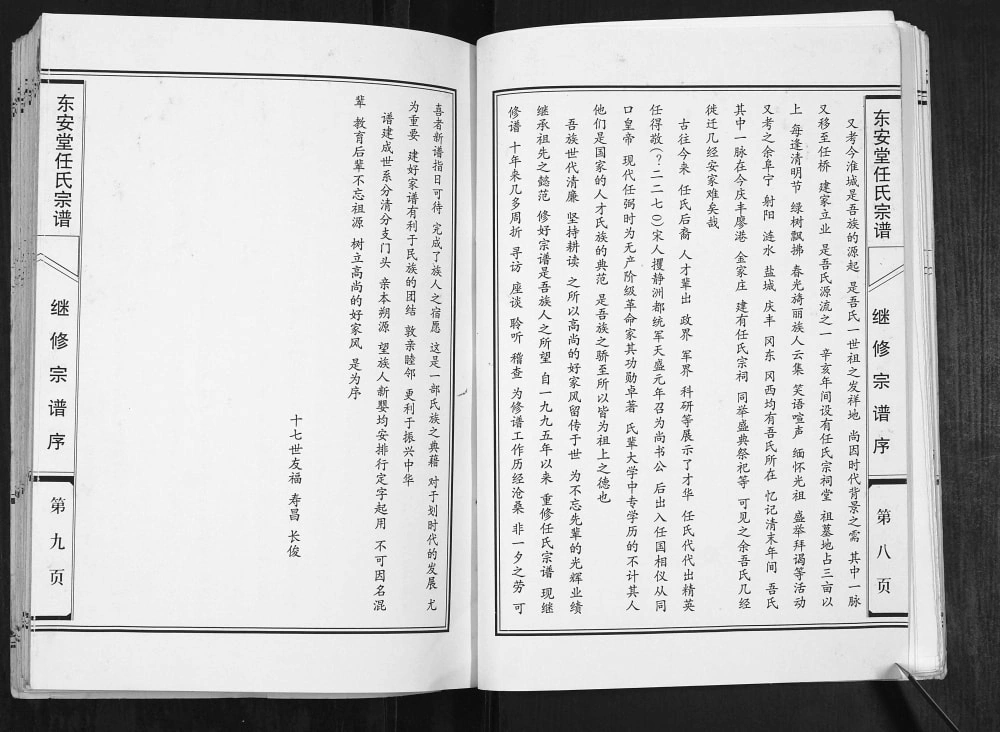 东安堂任氏宗谱
继修宗谱序
第八页
又考今淮城是吾族的源起 是吾氏一世祖之发祥地 尚因时代背景之需 其中一脉
又移至任桥 建家立业 是吾氏源流之一 辛亥年间设有任氏宗祠堂 祖墓地占三亩以
上 每逢清明节 绿树飘拂 春光旖丽族人云集 笑语喧声 缅怀光祖 盛举拜谒等活动
又考之余阜宁 射阳 涟水 盐城 庆丰 冈东 冈西均有吾氏所在 忆记清末年间 吾氏
其中一脉在今庆丰廖港 金家庄 建有任氏宗祠 同举盛典祭祀等 可见之余吾氏几经
徙迁几经安家难矣哉
古往今来 任氏后裔 人才辈出 政界 军界 科研等展示了才华 任氏代代出精英
任得敬(?二二七0)宋人攫静洲都统军天盛元年召为尚书公 后出入任国相仪从同
口皇帝 现代任弼时为无产阶级革命家其功勋卓著 氏辈大学中专学历的不计其人
他们是国家的人才氏族的典范 是吾族之骄至所以皆为祖上之德也
吾族世代清廉 坚持耕读 之所以高尚的好家风留传于世 为不忘先辈的光辉业绩
继承祖先之懿范 修好宗谱是吾族人之所望 自一九九五年以来 重修任氏宗谱 现继
修谱 十年来几多周折 寻访 座谈 聆听 稽查 为修谱工作历经沧桑 非一夕之劳 可
喜者新谱指日可待 完成了族人之宿愿 这是一部氏族之典籍 对于划时代的发展 尤
为重要 建好家谱有利于民族的团结 敦亲睦邻 更利于振兴中华
谱建成世系分清分支门头 亲本朔源 望族人新婴均安排行定字起用 不可因名混
辈 教育后辈不忘祖源 树立高尚的好家风 是为序
十七世友福 寿昌 长俊
东安堂任氏宗谱
继修宗谱序
第九页